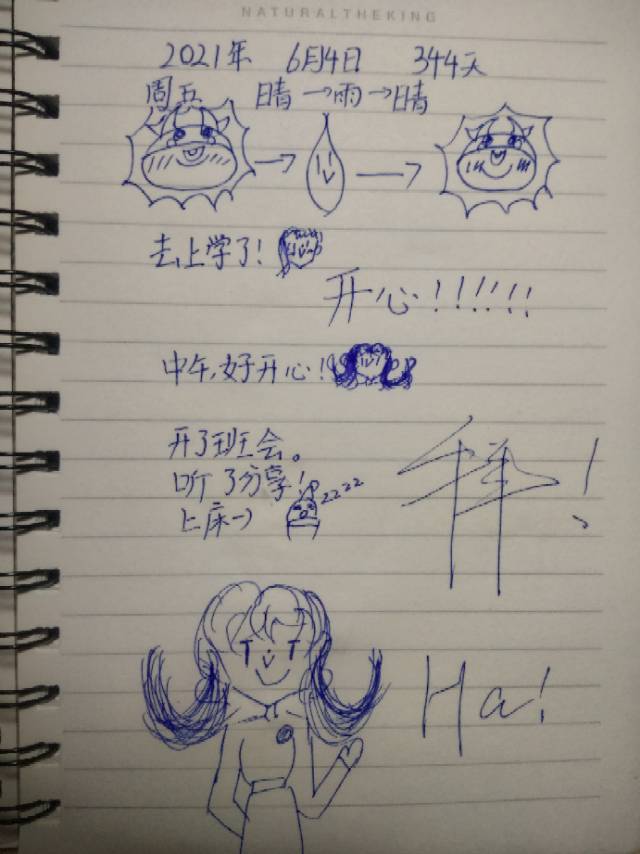 NATURALTHEKING
2021年 6月4日 344天
周五 晴→雨→晴
去上学了!
开心!!!!!!
中午,好开心!
开了班会。
听了分享!
上床→)
zzzz
Ha!